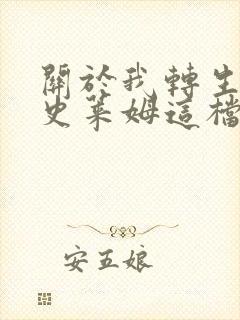 關於我轉生
史萊姆這檔
安五娘